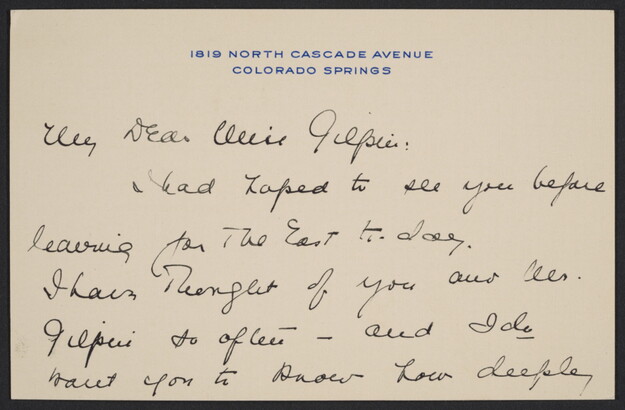 1819 NORTH CASCADE AVENUE
COLORADO SPRINGS
My Dear Miss Gilpin:
I had hoped to see you before
leaving for The East to-day.
I have Thought of you and Mr.
Gilpin so often – and I do
want you to know how deeply